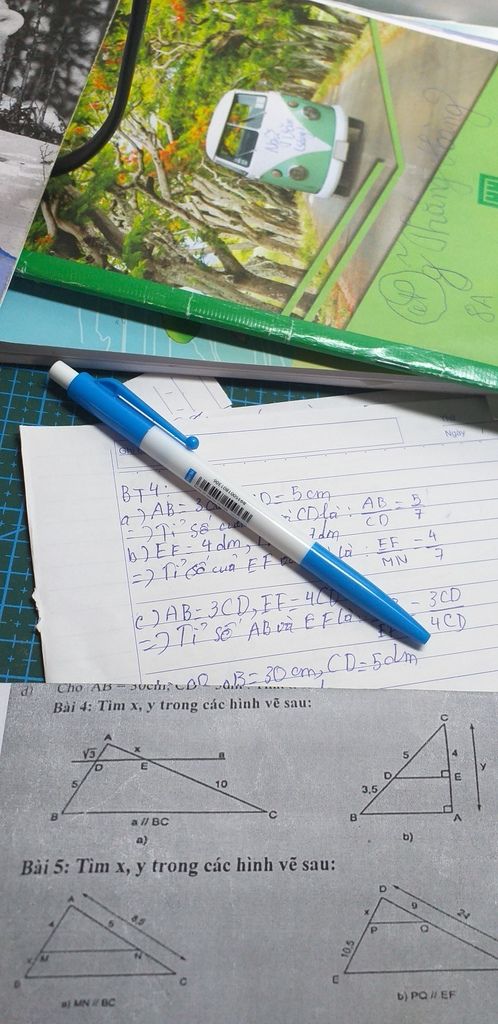 8A
Ngày
BT4:
a) AB = 3c D = 5cm
=> Tỉ số của CD là : AB/CD = 5/7
b) EF = 4dm, 7dm
=> Tỉ số của EF là : EF/MN = 4/7
c) AB = 3CD, EF = 4CD
=> Tỉ số AB và EF là 3CD/4CD
AB = 30cm, CD = 5dm
d) Cho AB = 30cm, CD
Bài 4: Tìm x, y trong các hình vẽ sau:
A
√3 x a
D E
5 10
B C
a // BC
a)
C
5 4 y
D E
3,5
B A
b)
Bài 5: Tìm x, y trong các hình vẽ sau:
A
4 5 8,5
M N
x
B C
a) MN // BC
D
x 9 24
P Q
10,5
E
b) PQ // EF